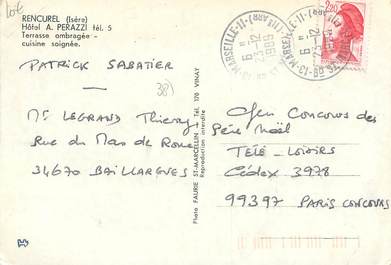 lot
RENCUREL (Isère)
Hôtel A. PERAZZI tél. 5
Terrasse ombragée -
cuisine soignée.
PATRICK SABATIER
38
Mr LEGRAND Thierry
Rue du Mas de Rome
34670 BAILLARGUES
Photo FAURIE ST-MARCELLIN Tél. 170 VINAY
Reproduction interdite
13-MARSEILLE-11
23-12
1985
13-MARSEILLE-11
23-12
1985
2,20
Jeu Concours du
Père Noël
TÉLÉ-LOISIRS
Cédex 3978
99397 PARIS CONCOURS